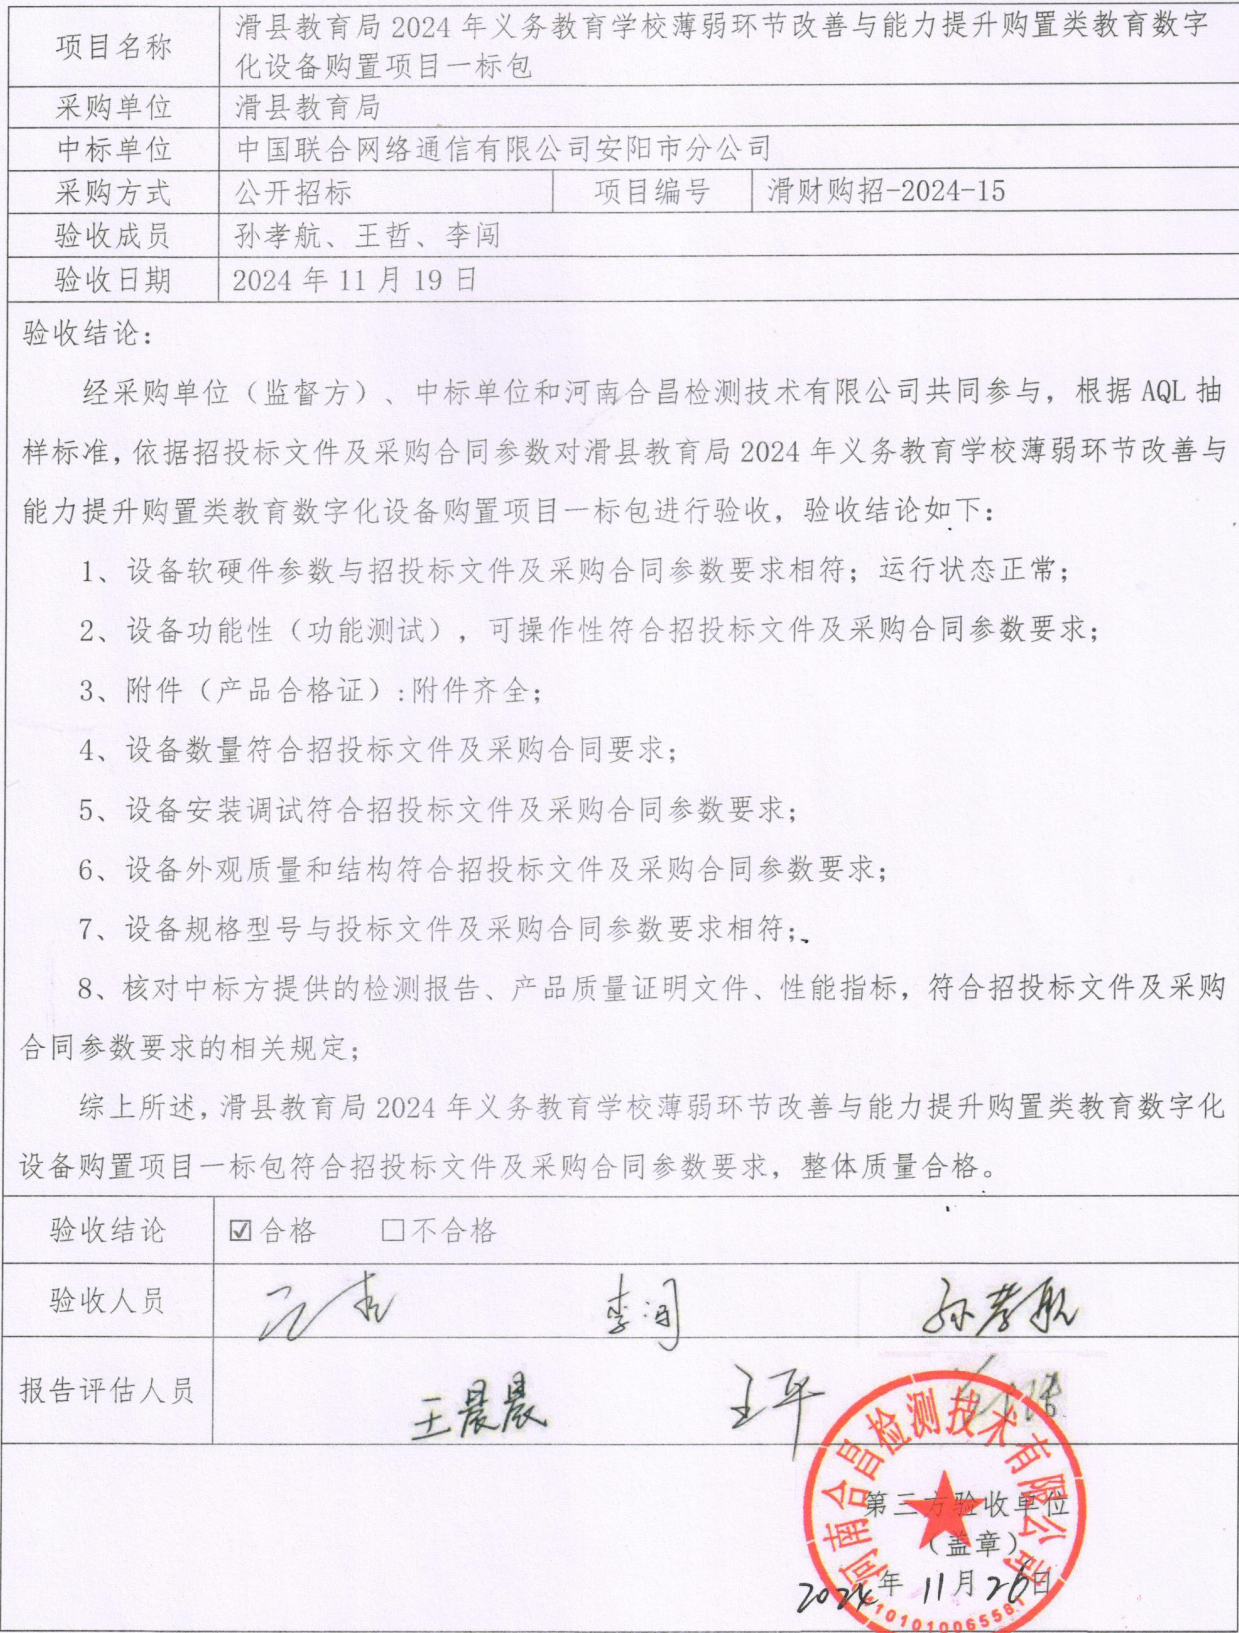 项目名称
滑县教育局 2024 年义务教育学校薄弱环节改善与能力提升购置类教育数字
化设备购置项目一标包
采购单位 滑县教育局
中标单位 中国联合网络通信有限公司安阳市分公司
采购方式 公开招标 项目编号 滑财购招-2024-15
验收成员 孙孝航、王哲、李闯
验收日期 2024 年 11 月 19 日
验收结论：
经采购单位（监督方）、中标单位和河南合昌检测技术有限公司共同参与，根据 AQL 抽
样标准，依据招投标文件及采购合同参数对滑县教育局 2024 年义务教育学校薄弱环节改善与
能力提升购置类教育数字化设备购置项目一标包进行验收，验收结论如下：
1、设备软硬件参数与招投标文件及采购合同参数要求相符；运行状态正常；
2、设备功能性（功能测试），可操作性符合招投标文件及采购合同参数要求；
3、附件（产品合格证）:附件齐全；
4、设备数量符合招投标文件及采购合同要求；
5、设备安装调试符合招投标文件及采购合同参数要求；
6、设备外观质量和结构符合招投标文件及采购合同参数要求；
7、设备规格型号与投标文件及采购合同参数要求相符；
8、核对中标方提供的检测报告、产品质量证明文件、性能指标，符合招投标文件及采购
合同参数要求的相关规定；
综上所述，滑县教育局 2024 年义务教育学校薄弱环节改善与能力提升购置类教育数字化
设备购置项目一标包符合招投标文件及采购合同参数要求，整体质量合格。
验收结论 ☑合格 □不合格
验收人员 王哲 李闯 孙孝航
报告评估人员 王晨晨 王平
河南合昌检测技术有限公司
第三方验收单位
（盖章）
2024年 11月26日